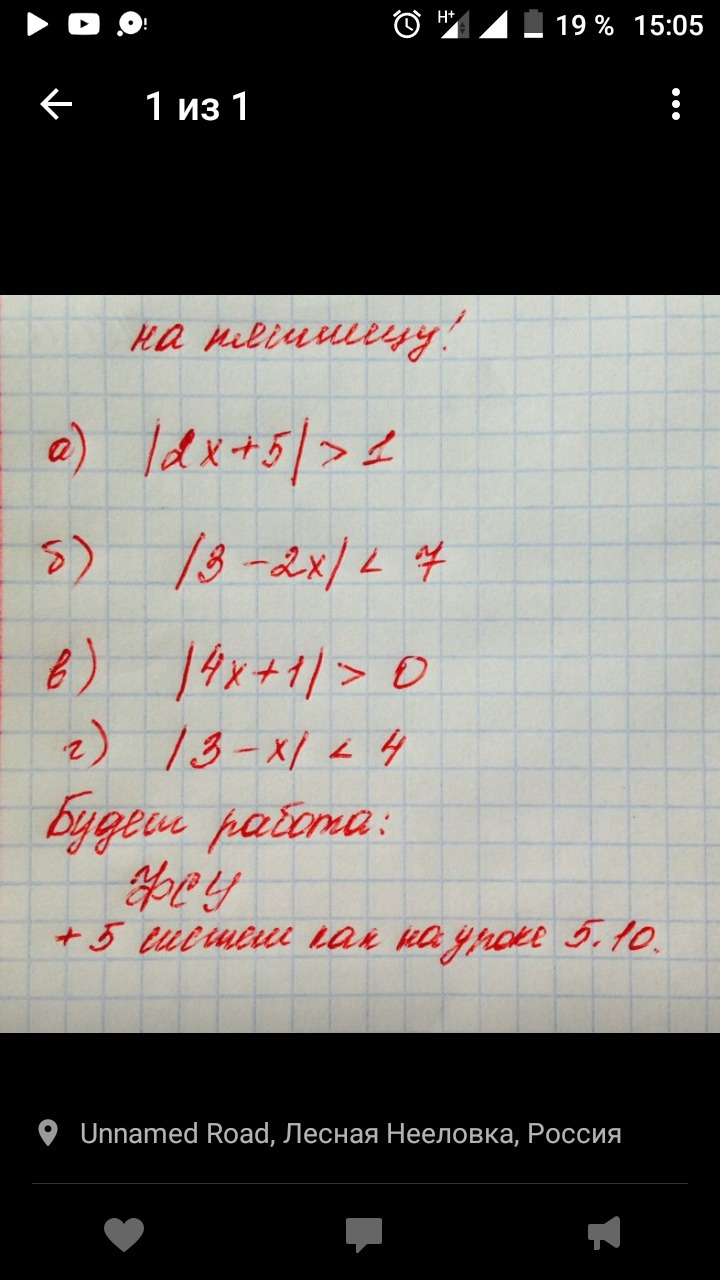 H+ 19 % 15:05
1 из 1
на пятницу!
а) |2x+5| > 1
б) |3-2x| < 7
в) |4x+1| > 0
г) |3-x| < 4
Будет работа:
ФСУ
+ 5 систем как на уроке 5.10.
Unnamed Road, Лесная Нееловка, Россия